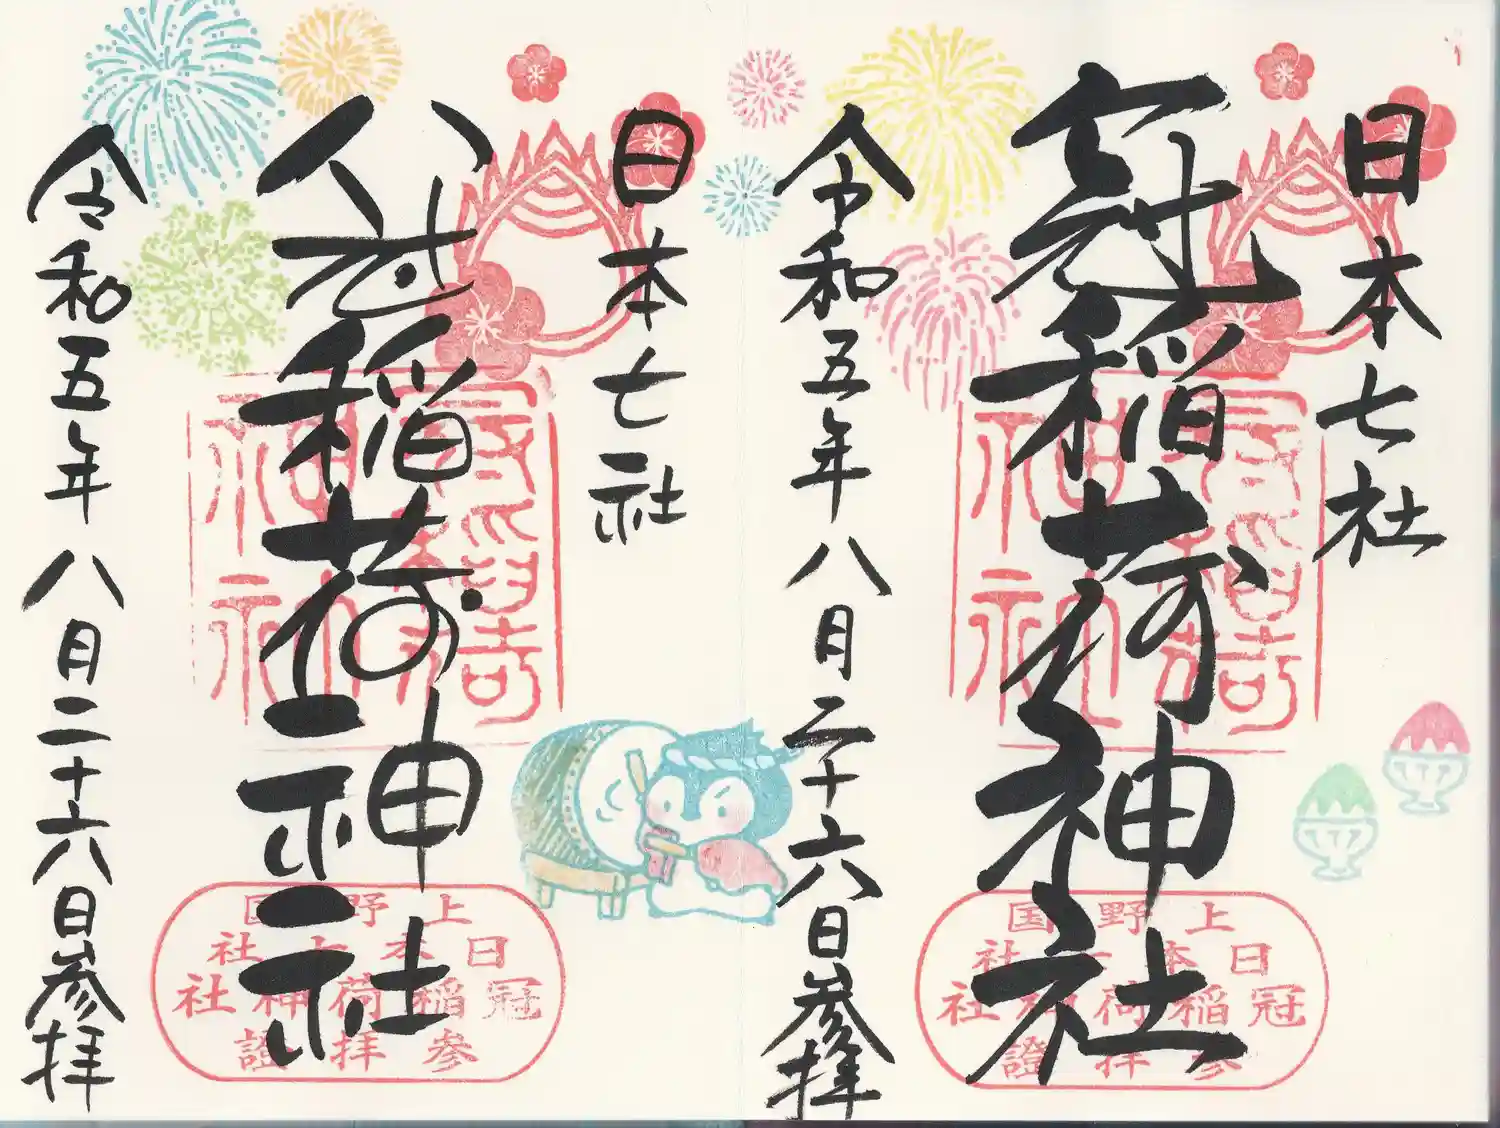 日本七社
冠稲荷神社
令和五年八月二十六日参拝
冠稲荷神社
上野国
日本七社
冠稲荷神社
参拝證
日本七社
冠稲荷神社
令和五年八月二十六日参拝
冠稲荷神社
上野国
日本七社
冠稲荷神社
参拝證